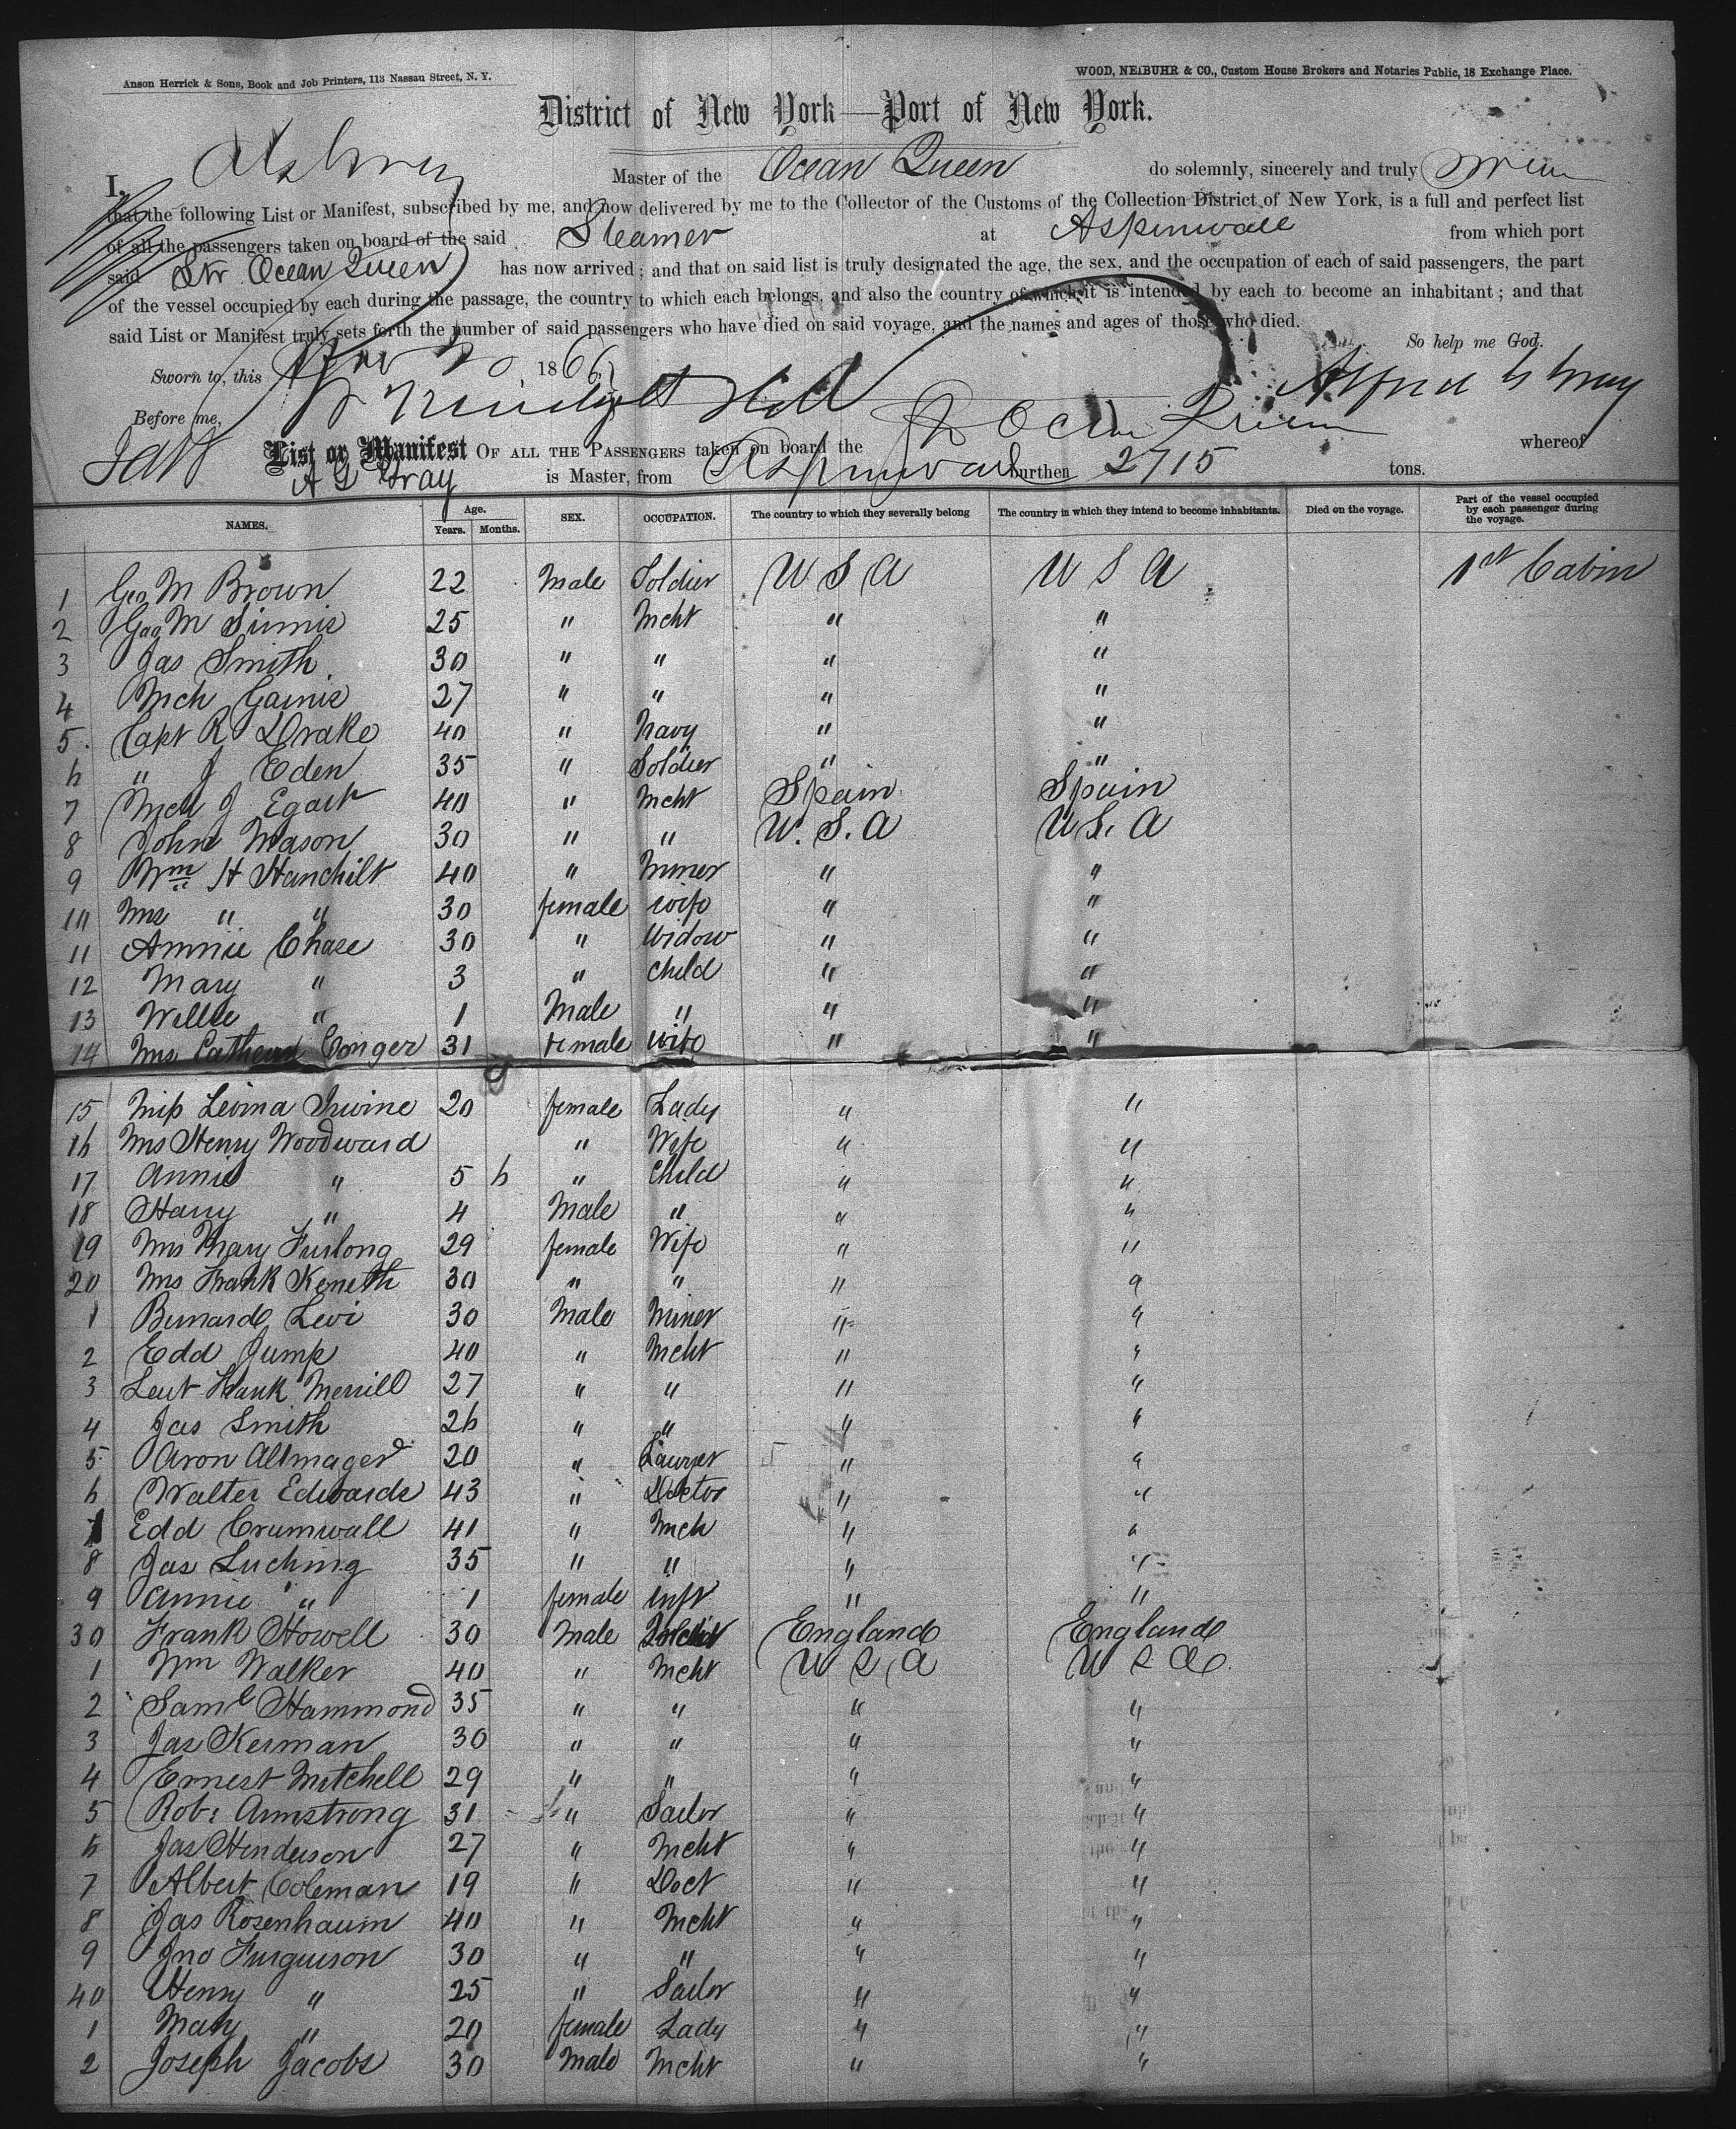 Anson Herrick & Sons, Book and Job Printers, 113 Nassau Street, N. Y.
WOOD, NEIBUHR & CO., Custom House Brokers and Notaries Public, 18 Exchange Place.
District of New York—Port of New York.
I, A G Gray Master of the Ocean Queen do solemnly, sincerely and truly
that the following List or Manifest, subscribed by me, and now delivered by me to the Collector of the Customs of the Collection District of New York, is a full and perfect list
of all the passengers taken on board of the said Steamer at Aspinwall from which port
said Str Ocean Queen has now arrived; and that on said list is truly designated the age, the sex, and the occupation of each of said passengers, the part
of the vessel occupied by each during the passage, the country to which each belongs, and also the country of which it is intended by each to become an inhabitant; and that
said List or Manifest truly sets forth the number of said passengers who have died on said voyage, and the names and ages of those who died.
So help me God.
Sworn to, this 1866
Alfred G Gray
Before me,
List or Manifest OF ALL THE PASSENGERS taken on board the Ocean Queen whereof
A G Gray is Master, from Aspinwall burthen 2715 tons.
NAMES. Age. Years. Months. SEX. OCCUPATION. The country to which they severally belong The country in which they intend to become inhabitants. Died on the voyage. Part of the vessel occupied by each passenger during the voyage.
1 Geo M Brown 22 Male Soldier U S A U S A 1st Cabin
2 Geo M Simis 25 " Mcht " "
3 Jas Smith 30 " " " "
4 Mch Garnie 27 " " " "
5 Capt R Drake 40 " Navy " "
6 " J Eden 35 " Soldier " "
7 J Egart 40 " Mcht Spain Spain
8 John Mason 30 " " U. S. A U S. A
9 Wm H Hanchilt 40 " Miner " "
10 Mrs " " 30 female wife " "
11 Annie Chase 30 " Widow " "
12 Mary " 3 " child " "
13 Willie " 1 Male " " "
14 Mrs Conger 31 female wife " "
15 Miss Levina Irvine 20 female Lady " "
16 Mrs Henry Woodward " Wife " "
17 Annie " 5 6 " child " "
18 Harry " 4 Male " " "
19 Mrs Mary Furlong 29 female Wife " "
20 Mrs Frank Keneth 30 " " " "
1 Bernard Levi 30 Male Miner " "
2 Edd Jump 40 " Mcht " "
3 Leut Frank Merrill 27 " " " "
4 Jas Smith 26 " " " "
5 Aron Altmager 20 " Lawyer " "
6 Walter Edwards 43 " Doctor " "
7 Edd Crumwall 41 " Mch " "
8 Jas Luching 35 " " " "
9 Annie " 1 female inft " "
30 Frank Howell 30 Male England England
1 Wm Walker 40 " Mcht U S A U S A
2 Saml Hammond 35 " " " "
3 Jas Kerman 30 " " " "
4 Ernest Mitchell 29 " " " "
5 Robt Armstrong 31 " Sailor " "
6 Jas Henderson 27 " Mcht " "
7 Albert Coleman 19 " Doct " "
8 Jas Rosenhaum 40 " Mcht " "
9 Jno Furguison 30 " " " "
40 Henry " 25 " Sailor " "
1 Mary " 20 female Lady " "
2 Joseph Jacobs 30 Male Mcht " "